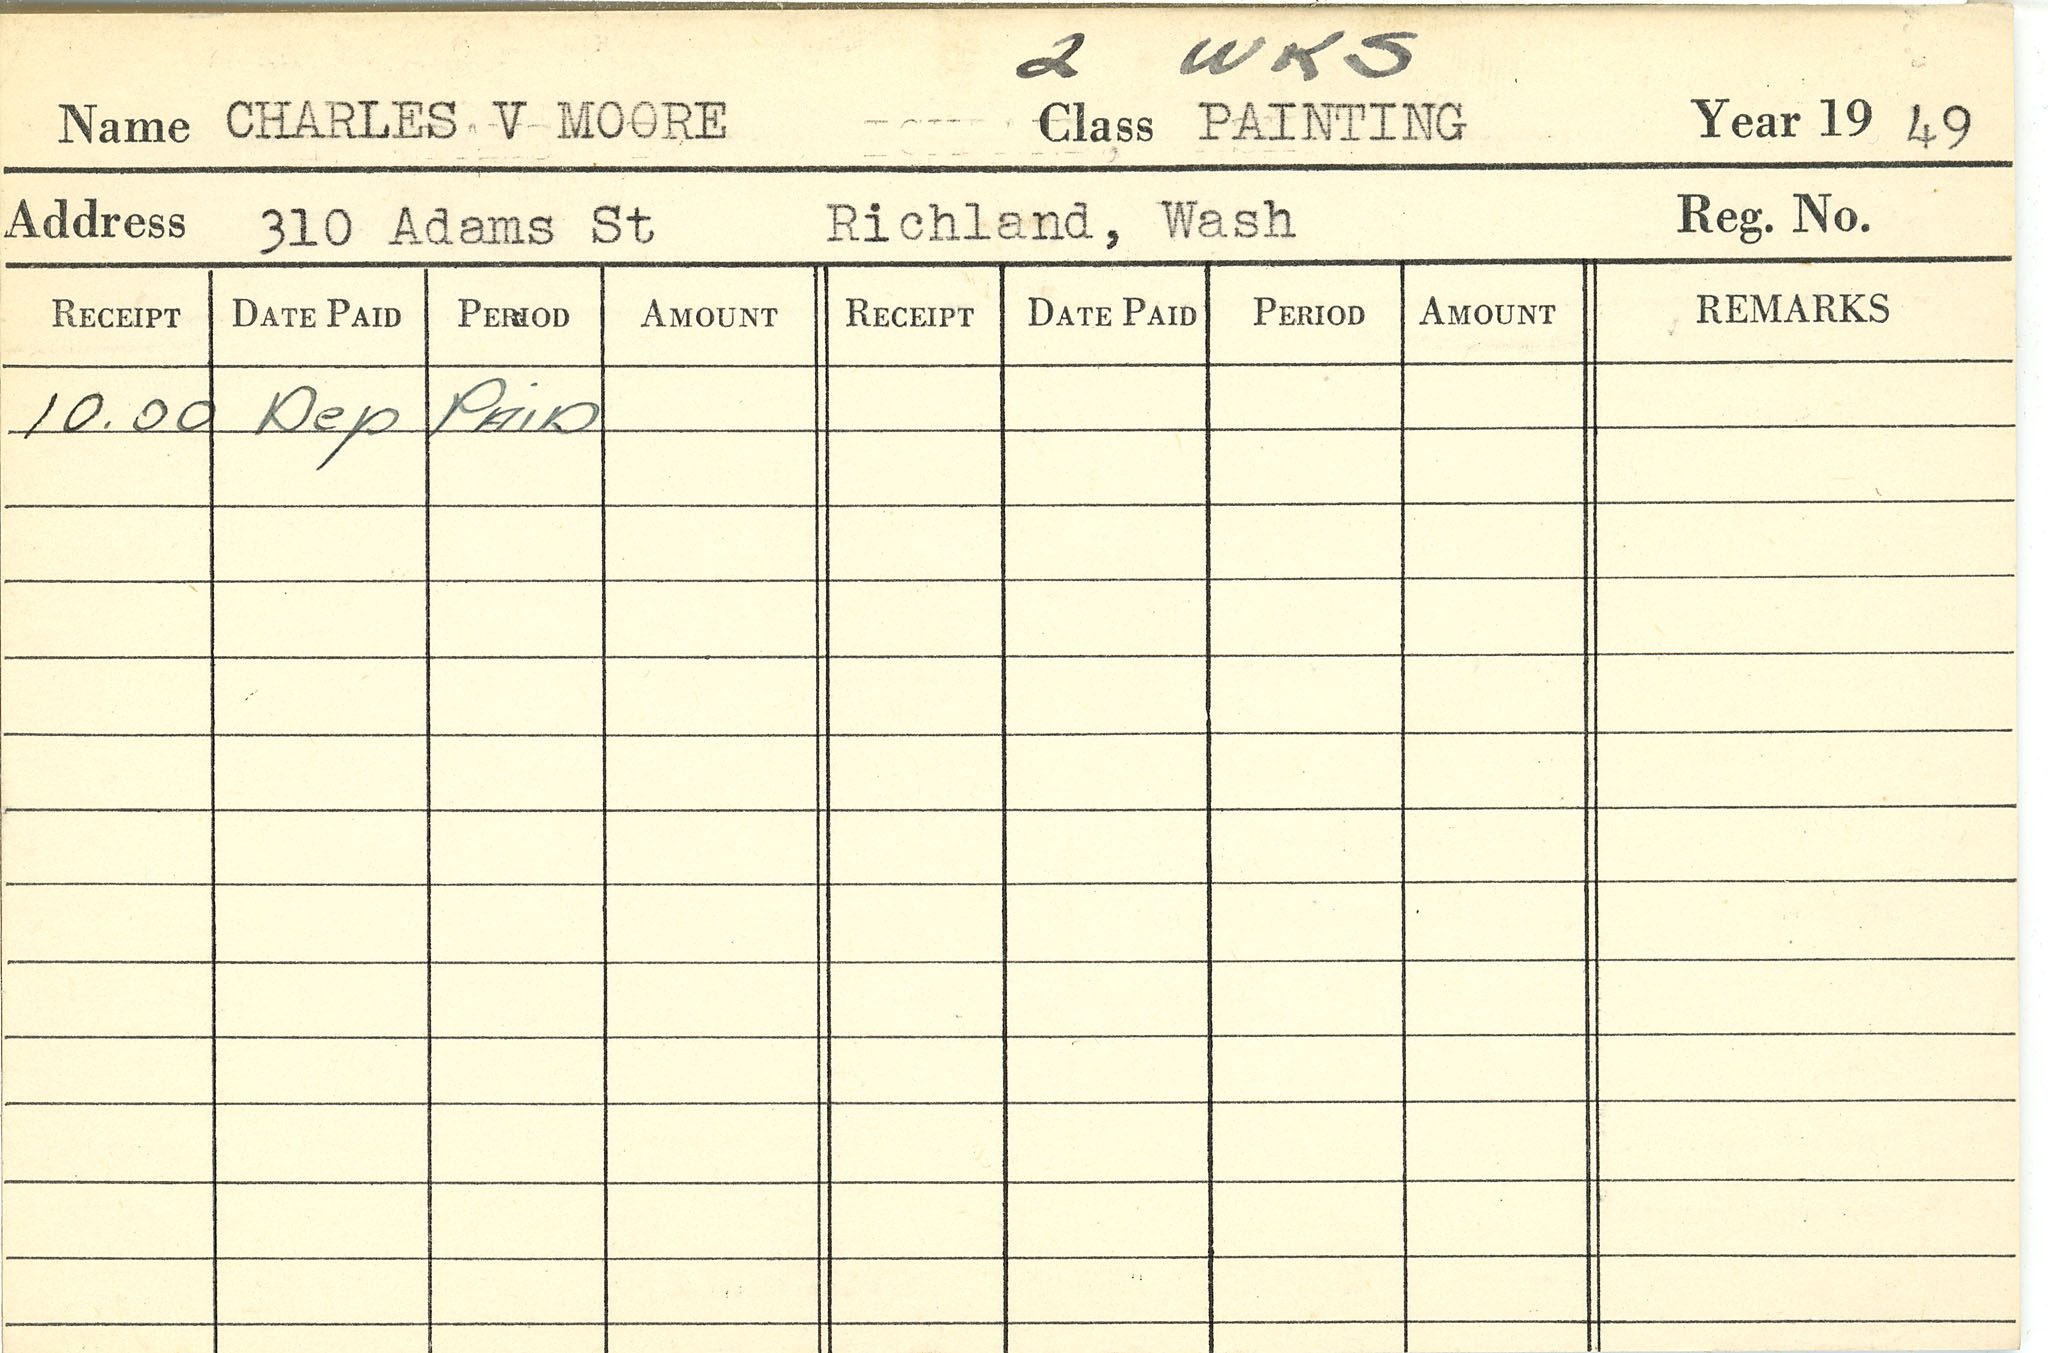 2 WKS
Name CHARLES V MOORE Class PAINTING Year 19 49
Address 310 Adams St Richland, Wash Reg. No.
RECEIPT DATE PAID PERIOD AMOUNT RECEIPT DATE PAID PERIOD AMOUNT REMARKS
10.00 Dep PAID